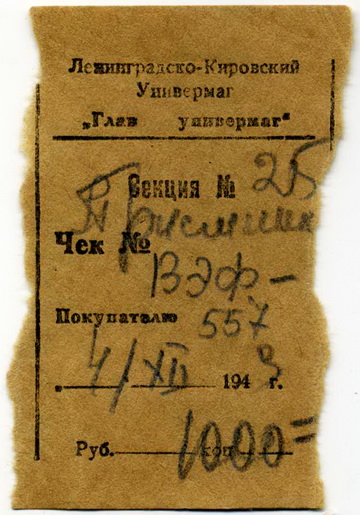 Ленинградско-Кировский
Универмаг
„Глав универмаг"
Секция № 25
Приемник
Чек №
ВЭФ-
Покупателю 557
4/XII 194 г.
Руб. 1000= коп